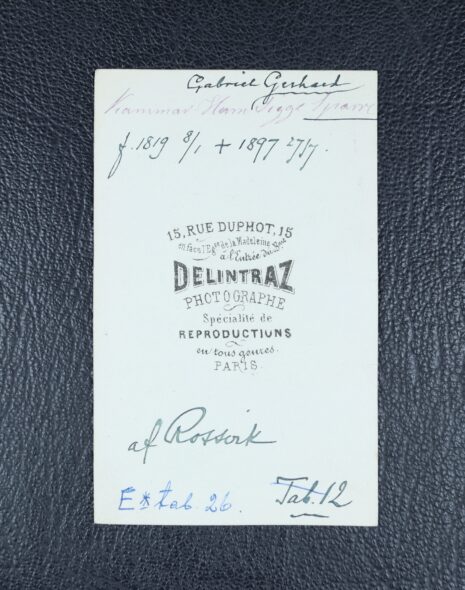 Gabriel Gerhard
Kammar Herr Sigge Sparre
f. 1819 8/1 + 1897 27/7.
15, RUE DUPHOT, 15
en face l'Egse de la Madeleine
à l'Entrée du
DELINTRAZ
PHOTOGRAPHE
Spécialité de
REPRODUCTIONS
en tous genres.
PARIS.
af Rossvik
E* tab. 26.
Tab. 12